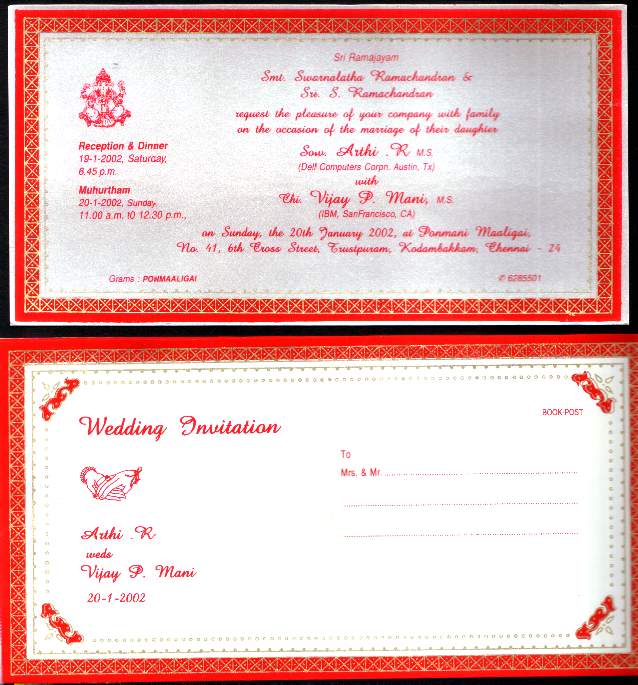 Sri Ramajayam
Smt. Swarnalatha Ramachandran &
Sri. S. Ramachandran
request the pleasure of your company with family
on the occasion of the marriage of their daughter
Sow. Arthi .R M.S.
(Dell Computers Corpn. Austin, Tx)
with
Chi. Vijay P. Mani, M.S.
(IBM, SanFrancisco, CA)
on Sunday, the 20th January 2002, at Ponmani Maaligai,
No. 41, 6th Cross Street, Trustpuram, Kodambakkam, Chennai - 24
Reception & Dinner
19-1-2002, Saturday,
6.45 p.m.
Muhurtham
20-1-2002, Sunday
11.00 a.m. to 12.30 p.m.,
Grams : PONMAALIGAI
✆ 6285501
Wedding Invitation
BOOK-POST
To
Mrs. & Mr.
Arthi .R
weds
Vijay P. Mani
20-1-2002